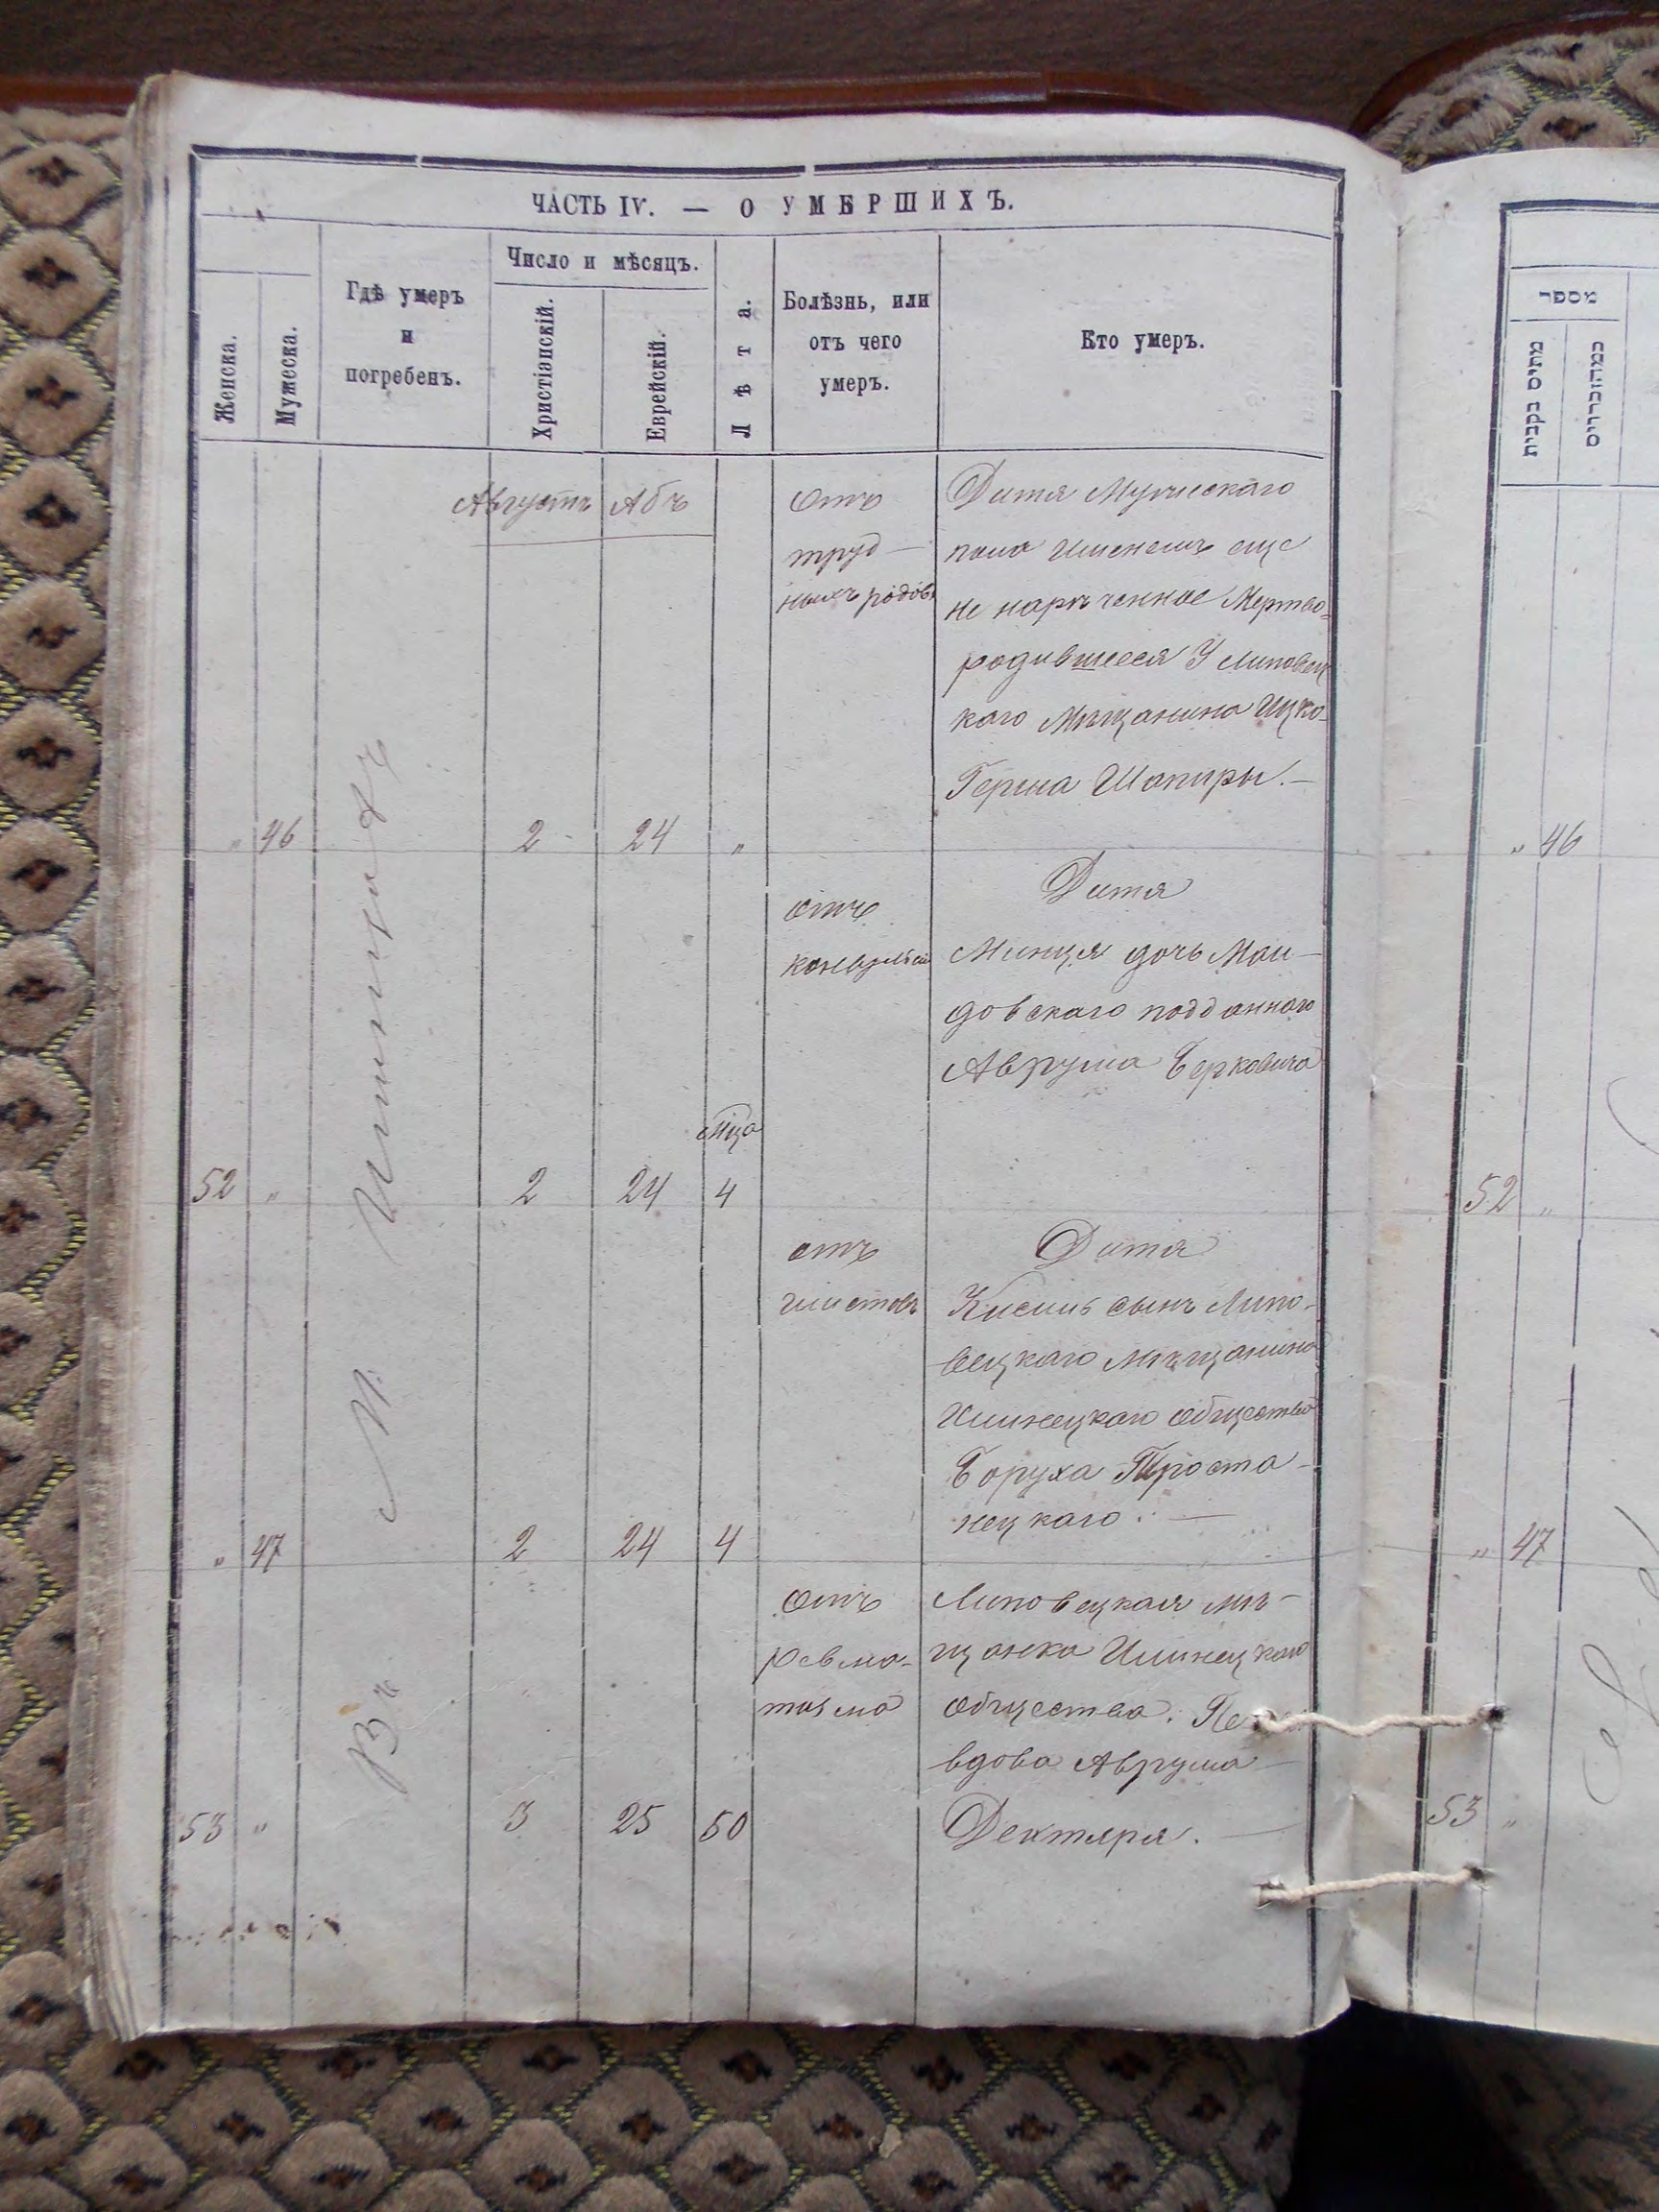 ЧАСТЬ IV. — О УМЕРШИХЪ.
Женска.
Мужеска.
Гдѣ умеръ
и
погребенъ.
Число и мѣсяцъ.
Христіанскій.
Еврейскій.
Лѣта.
Болѣзнь, или
отъ чего
умеръ.
Кто умеръ.
Въ М. Ильинцахъ
Августъ Абъ
„ 46 2 24 „
отъ
труд—
ныхъ родовъ
Дитя Мужескаго
пола именемъ еще
не нареченное Мертво-
родившееся У Липовец
каго Мѣщанина Ицко-
Герша Шапиры.—
52 „ 2 24 4
мѣсяца
отъ
конвульсій
Дитя
Минця дочь Мол—
довскаго подданнаго
Аврума Берковича
„ 47 2 24 4
отъ
глистовъ
Дитя
Кисиль сынъ Липо-
вецкаго мѣщанина
Илинецкаго общества
Боруха Троста-
нецкаго. —
53 „ 3 25 50
отъ
ревма-
тизма
Липовецкая мѣ-
щанка Илинецкаго
общества.
вдова Аврума—
Дехтяря. —
מספר
46
52
47
53